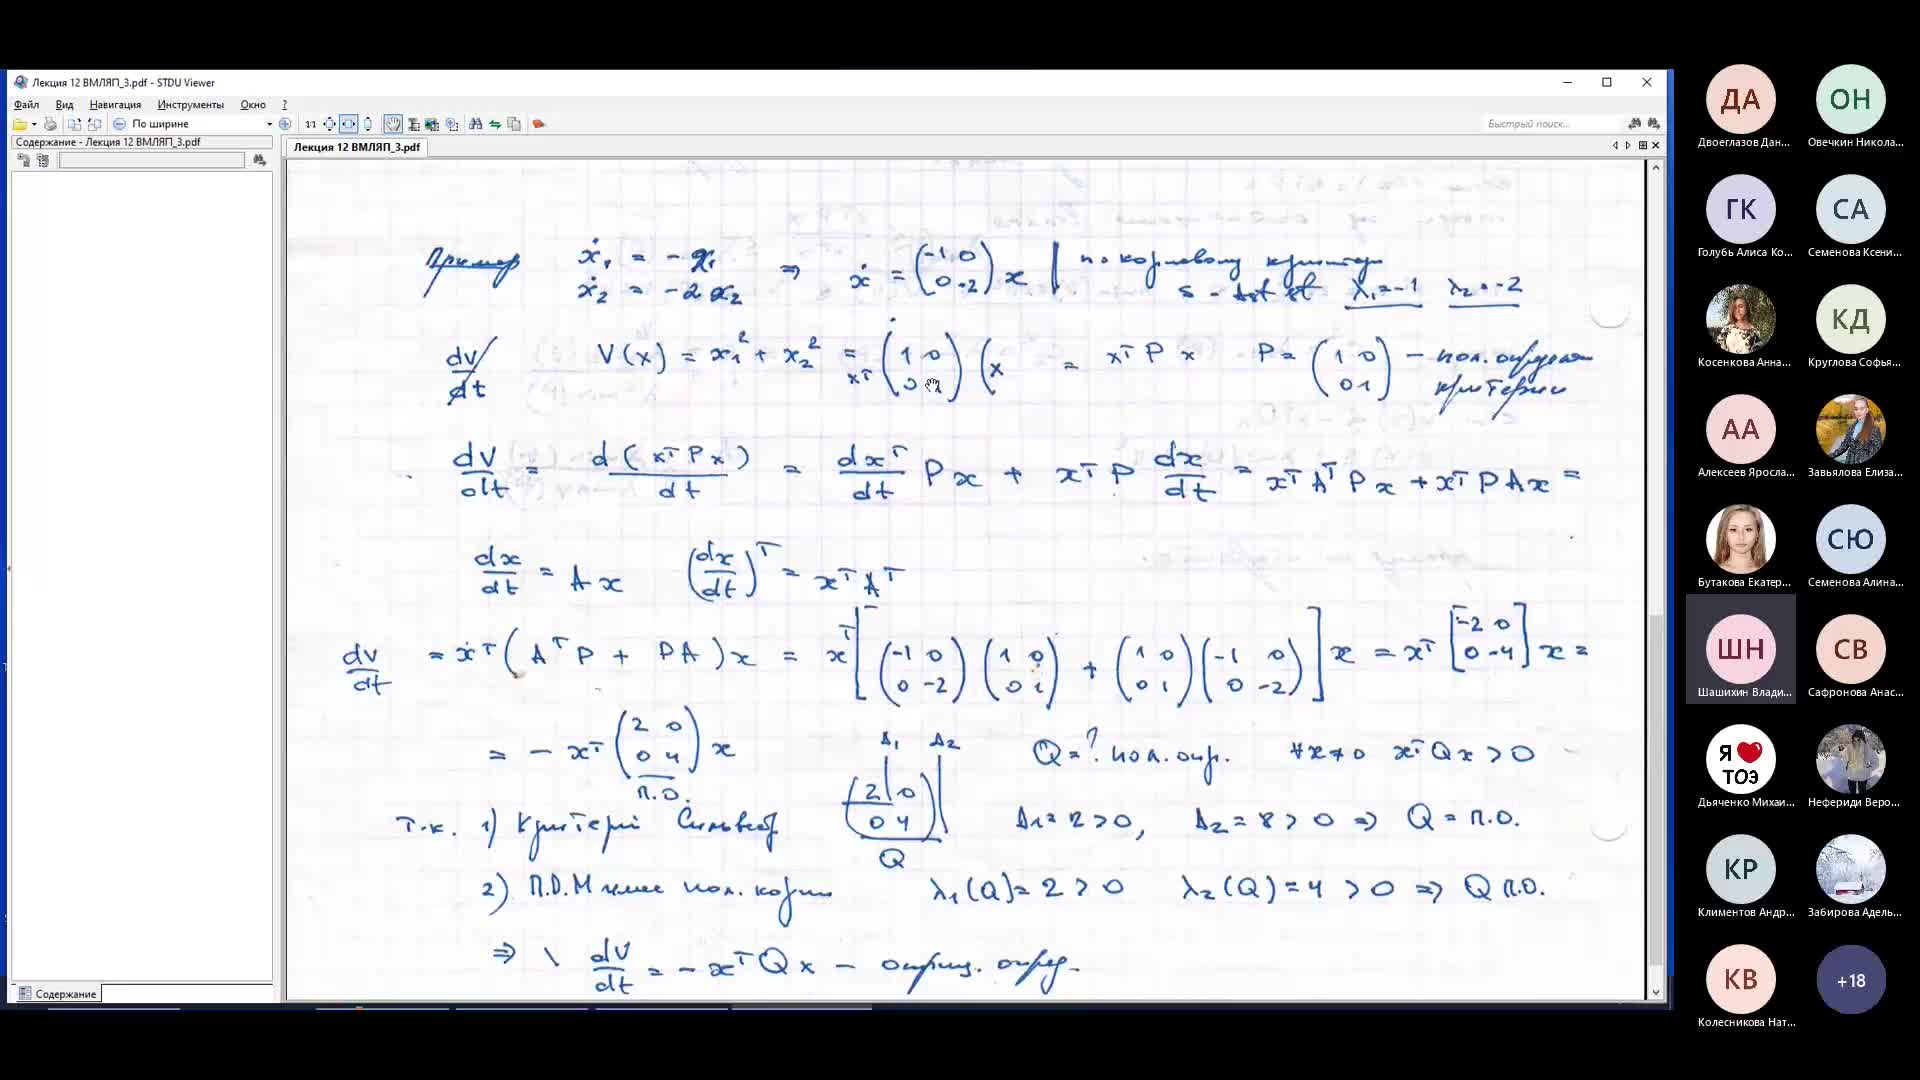 Лекция 12 ВМЛЯП_3.pdf - STDU Viewer
Файл Вид Навигация Инструменты Окно ?
По ширине
Быстрый поиск...
Содержание - Лекция 12 ВМЛЯП_3.pdf
Лекция 12 ВМЛЯП_3.pdf
Пример ẋ₁ = -x₁ ⇒ ẋ = (-1 0 0 -2) x | по корневому критерию
ẋ₂ = -2x₂ s - Ast st λ₁=-1 λ₂=-2
dv/dt V(x) = x₁² + x₂² = xᵀ (1 0 0 1) (x = xᵀ P x P = (1 0 0 1) - пол. определен
критерии
dV/dt = d(xᵀPx)/dt = dxᵀ/dt Px + xᵀP dx/dt = xᵀAᵀPx + xᵀPAx =
dx/dt = Ax (dx/dt)ᵀ = xᵀAᵀ
dv/dt = xᵀ(AᵀP + PA)x = xᵀ[(-1 0 0 -2)(1 0 0 1) + (1 0 0 1)(-1 0 0 -2)]x = xᵀ[-2 0 0 -4]x =
= - xᵀ(2 0 0 4)x Δ₁ Δ₂ Q=? пол. опр. ∀x≠0 xᵀQx > 0
п.о.
Т.к. 1) Критерий Сильвестр (2 0 0 4) Δ₁=2>0, Δ₂=8>0 ⇒ Q = п.о.
Q
2) П.О.М имеет пол. корни λ₁(Q)=2>0 λ₂(Q)=4>0 ⇒ Q п.о.
⇒ \ dV/dt = -xᵀQx - отриц. опред.
Содержание
ДА
Двоеглазов Дан...
ОН
Овечкин Никола...
ГК
Голубь Алиса Ко...
СА
Семенова Ксени...
Косенкова Анна...
КД
Круглова Софья...
АА
Алексеев Яросла...
Завьялова Елиза...
Бутакова Екатер...
СЮ
Семенова Алина...
ШН
Шашихин Влади...
СВ
Сафронова Анас...
Я ❤ ТОЭ
Дьяченко Михаи...
Нефериди Веро...
КР
Климентов Андр...
Забирова Адель...
КВ
Колесникова Нат...
+18